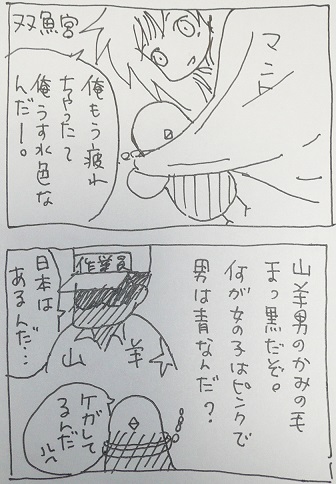 双魚宮
マント
俺もう疲れ
ちゃったて
俺うす水色な
んだー。
山羊男のかみの毛
まっ黒だぞ。
何が女の子はピンクで
男は青なんだ？
作業員
山羊
日本は
あるんだ…
ケガして
るんだ
ルへ